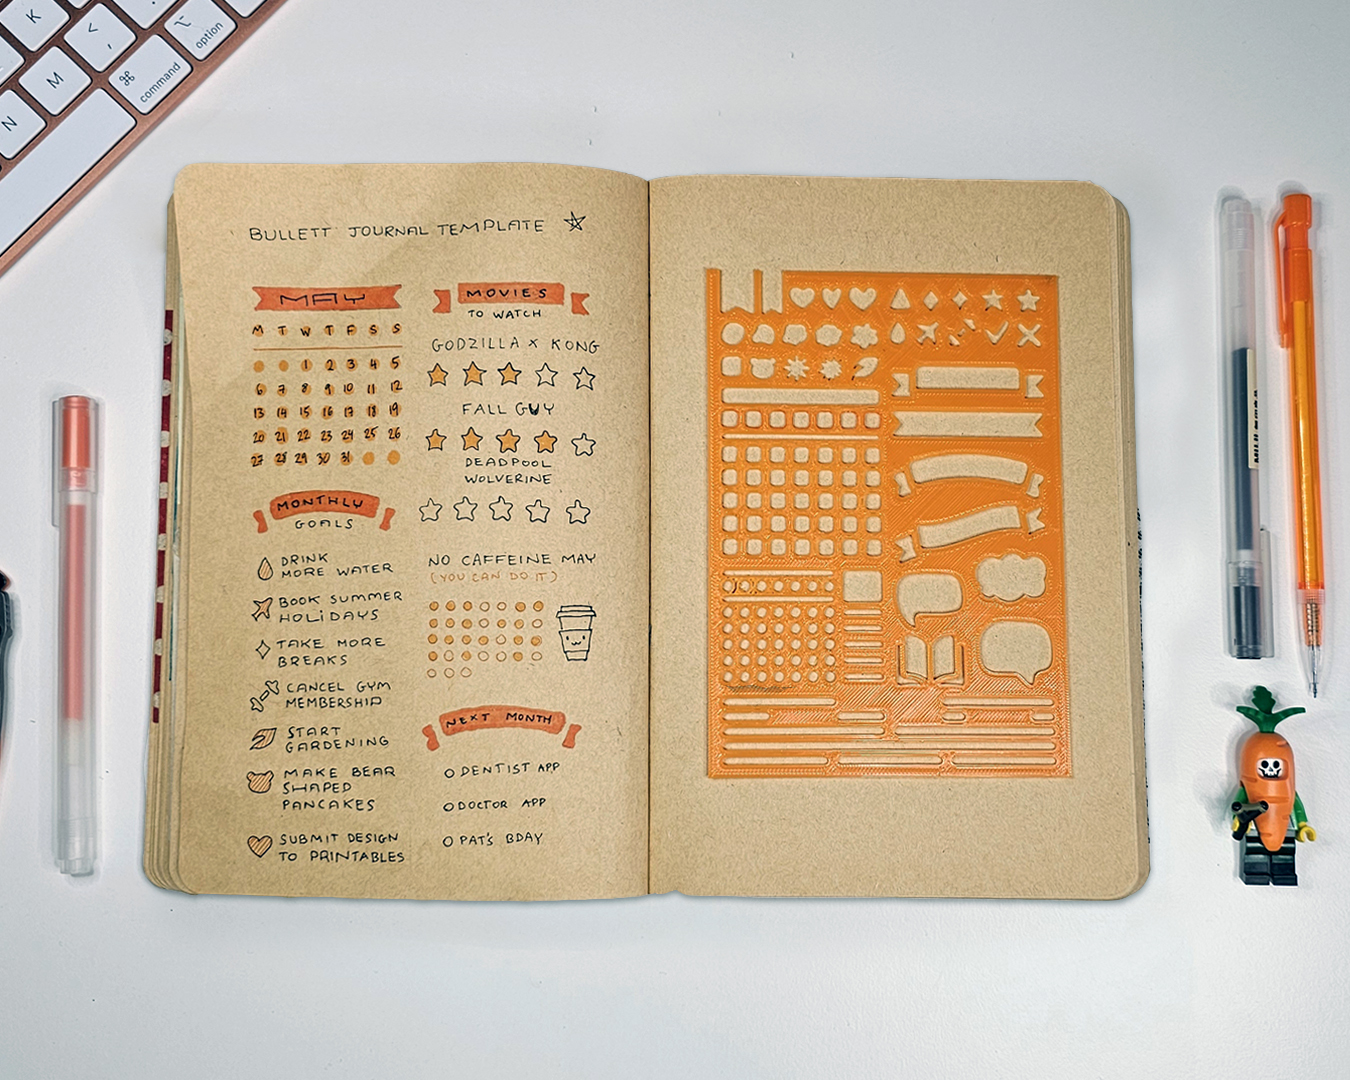 K
<
,
M
N
⌘
command
⌥
option
BULLETT JOURNAL TEMPLATE
MAY
M T W T F S S
1 2 3 4 5
6 7 8 9 10 11 12
13 14 15 16 17 18 19
20 21 22 23 24 25 26
27 28 29 30 31
MONTHLY
GOALS
DRINK
MORE WATER
BOOK SUMMER
HOLIDAYS
TAKE MORE
BREAKS
CANCEL GYM
MEMBERSHIP
START
GARDENING
MAKE BEAR
SHAPED
PANCAKES
SUBMIT DESIGN
TO PRINTABLES
MOVIES
TO WATCH
GODZILLA X KONG
FALL GUY
DEADPOOL
WOLVERINE
NO CAFFEINE MAY
(YOU CAN DO IT)
NEXT MONTH
O DENTIST APP
O DOCTOR APP
O PAT'S BDAY